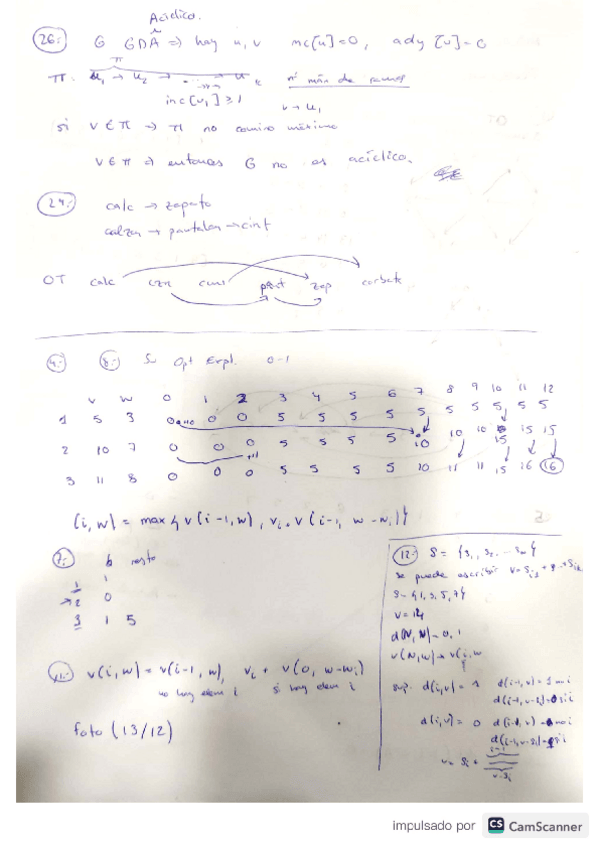 Acíclico.
26: G GDA ⇒ hay u, v inc[u]=0, ady[v]=0
π
π: u₁ → u₂ → ... → u k nº máx de ramos
inc[u₁] ≥ 1 v → u₁
si v ∉ π → π no camino máximo
v ∈ π ⇒ entonces G no es acíclico.
24: calc → zapato
calzon → pantalon → cint
OT calc czn cam pant zap corbata
8: Su Opt Expl. 0-1
v w 0 1 2 3 4 5 6 7 8 9 10 11 12
1 5 3 0 0 0 5 5 5 5 5 5 5 5 5 5
2 10 7 0 0 0 5 5 5 5 10 10 10 15 15 15
3 11 8 0 0 0 5 5 5 5 10 11 11 15 16 16
(i, w) = max { v(i-1, w), vi + v(i-1, w-wi) }
b resto
1 1
→ 2 0
3 1 5
11. v(i, w) = v(i-1, w), vi + v(0, w-wi)
no hay elem i si hay elem i
foto (13/12)
12: S = {s₁, s₂ ... sn}
se puede escribir v = si₁ + + sik
S = {1, 3, 5, 7}
v = 14
d(N, N) = 0, 1
v(N, W) → v(i, w
sup. d(i, v) = 1 d(i-1, v) = 1 no i
d(i-1, v-si) = 0 si i
d(i, v) = 0 d(i-1, v) = no i
d(i-1, v-si) = si i
v = si +
i-1
v-si
impulsado por CS CamScanner